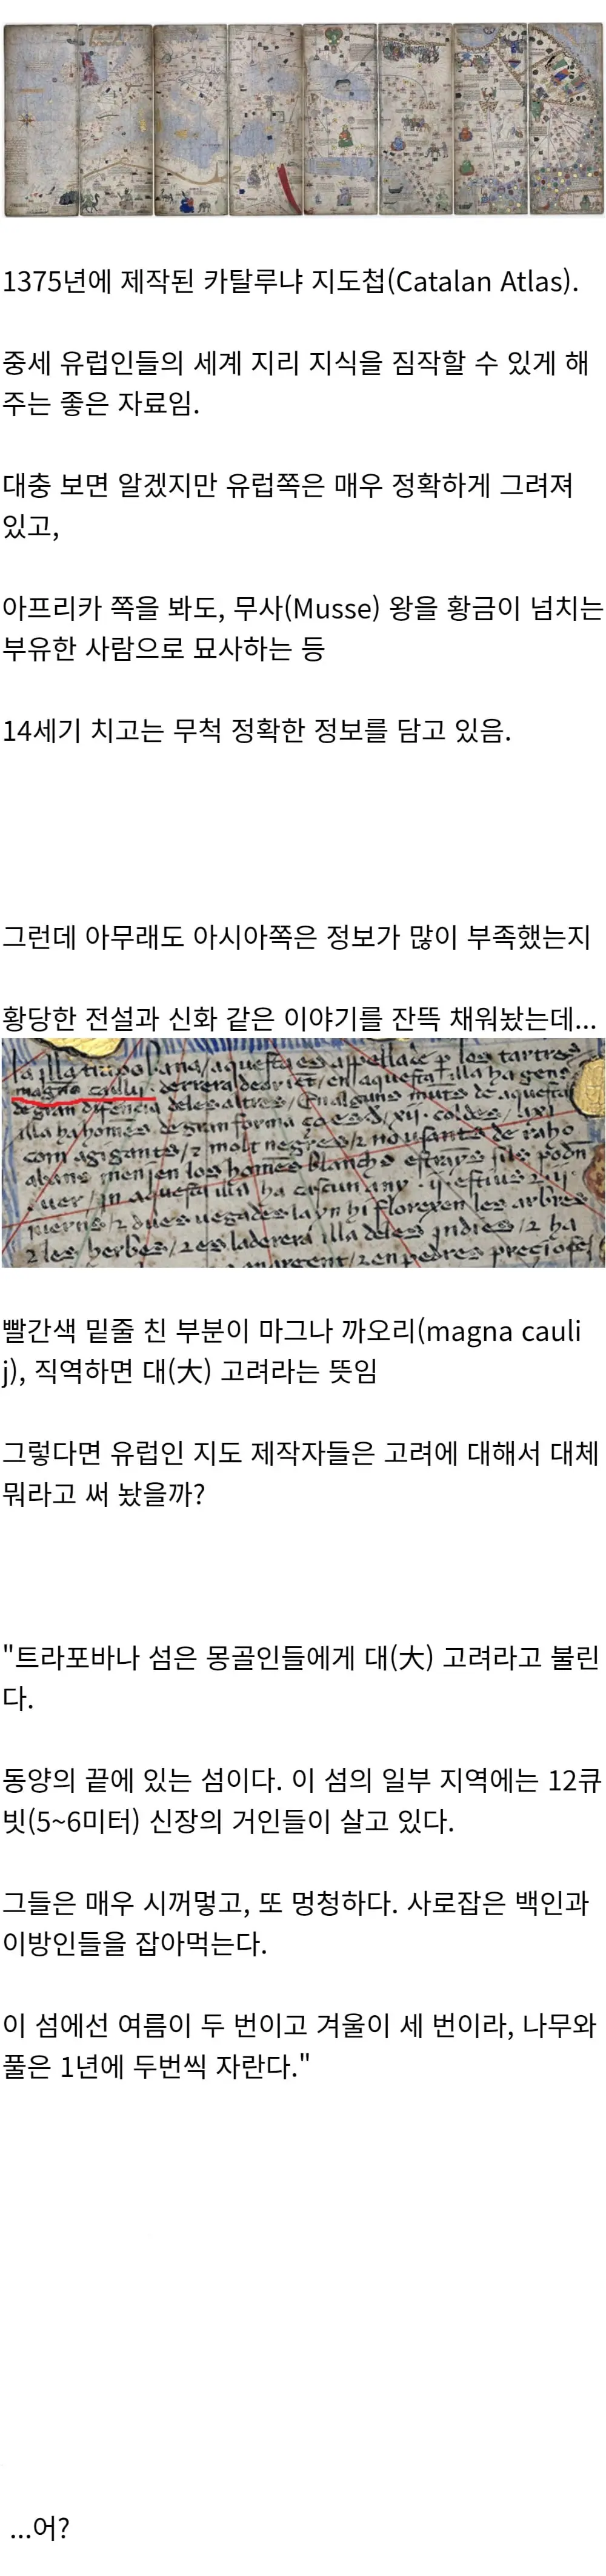 1375년에 제작된 카탈루냐 지도첩(Catalan Atlas).
중세 유럽인들의 세계 지리 지식을 짐작할 수 있게 해
주는 좋은 자료임.
대충 보면 알겠지만 유럽쪽은 매우 정확하게 그려져
있고,
아프리카 쪽을 봐도, 무사(Musse) 왕을 황금이 넘치는
부유한 사람으로 묘사하는 등
14세기 치고는 무척 정확한 정보를 담고 있음.
그런데 아무래도 아시아쪽은 정보가 많이 부족했는지
황당한 전설과 신화 같은 이야기를 잔뜩 채워놨는데...
la illa trapobana / aquesta es appellada p los tartres
magno caulij
illa ha homes de gran forma ço es d / xij · coldes /
com agigants / 2 molt negres / 2 no usants de raho
2 les herbes / 2 es la derera illa deles jndies / 2 ha
빨간색 밑줄 친 부분이 마그나 까오리(magna cauli
j), 직역하면 대(大) 고려라는 뜻임
그렇다면 유럽인 지도 제작자들은 고려에 대해서 대체
뭐라고 써 놨을까?
"트라포바나 섬은 몽골인들에게 대(大) 고려라고 불린
다.
동양의 끝에 있는 섬이다. 이 섬의 일부 지역에는 12큐
빗(5~6미터) 신장의 거인들이 살고 있다.
그들은 매우 시꺼멓고, 또 멍청하다. 사로잡은 백인과
이방인들을 잡아먹는다.
이 섬에선 여름이 두 번이고 겨울이 세 번이라, 나무와
풀은 1년에 두번씩 자란다."
...어?